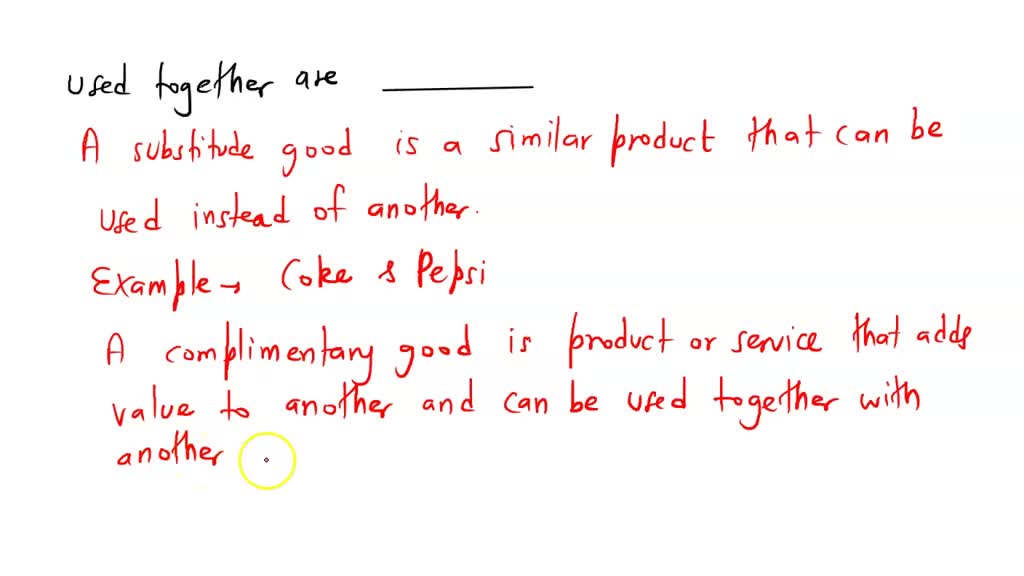 used together are
A substitude good is a similar product that can be
used instead of another.
Example → Coke & Pepsi
A complimentary good is product or service that adds
value to another and can be used together with
another